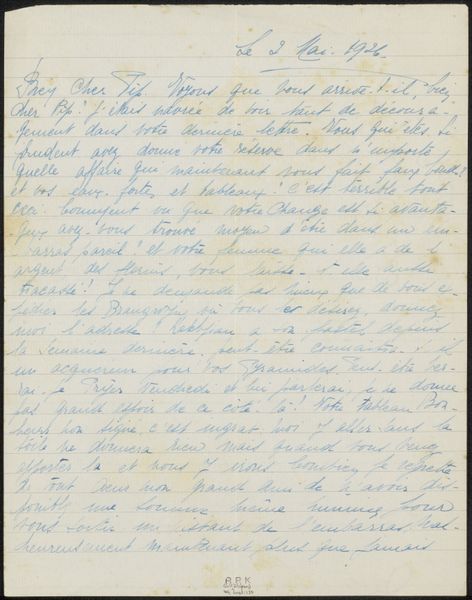 Le 2 Mai. 1926.
Bien Cher Pip. Voyons que vous arrive-t-il, bien
cher Pip! J'étais navrée de voir tant de décour a-
gement dans votre dernière lettre. Vous qui êtes si
prudent avez donc votre réserve dans n'importe
quelle affaire que maintenant vous fait faux bond!
et vos eaux-fortes et tableaux! C'est terrible tout
ceci. Comment vu que votre Change est si avanta-
geux avez-vous trouvé moyen d'être dans un em-
barras pareil! et votre femme qui elle a de l'
argent des
tracasse! Je ne demande pas mieux que de vous ex-
pédier les Brangwyn où vous les désirez, donnez
moi l'adresse! a son depuis
la semaine dernière. peut être connaîtra-t-il
un acquéreur pour vos Pyramides. Peut être
je Vendredi et lui parlerai, je ne donne
pas grand espoir de ce côté-là! Votre tableau Bon-
heur non signé, c'est ingrat, moi j'aller sans la
toile ne donnera rien mais quand vous venez
apportez la et nous y irons. Combien je regrette
de tout cœur mon grand ami de n'avoir dis-
ponible une somme même minime pour
vous sortir un instant de l'embarras, mal-
heureusement maintenant plus que jamais
R.P.K